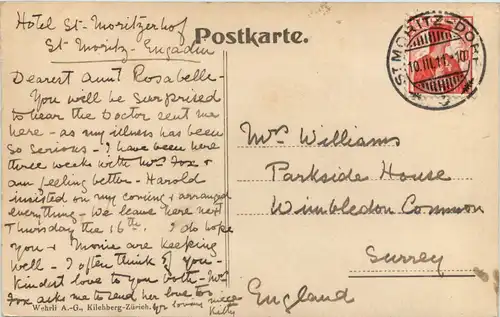 Hotel St-Moritzerhof
St-Moritz-Engadin
Postkarte.
ST. MORITZ-DORF
10.III.11.-10
Dearest Aunt Rosabelle-
You will be surprised
to hear the Doctor sent me
here - as my illness has been
so serious - I have been here
three weeks with Mrs Fox &
am feeling better - Harold
insisted on my coming & arranged
everything - We leave here next
Thursday the 16th. I do hope
you & Monie are keeping
well - I often think of you -
Kindest love to you both - Mrs
Fox asks me to send her love too
yr loving niece
Kitty
Wehrli A.-G., Kilchberg-Zürich.
Mrs Williams
Parkside House
Wimbledon Common
Surrey
England